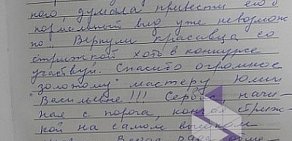 кого, думала привести его в
нормальный вид уже невозмож
но. Вернули красавца со
стрижкой хоть в конкурсе
участвуй. Спасибо огромное
золотому мастеру Юлии
Васильевне!!! Сервис начи
ная с порога, кончая стриж
кой на самом высоком